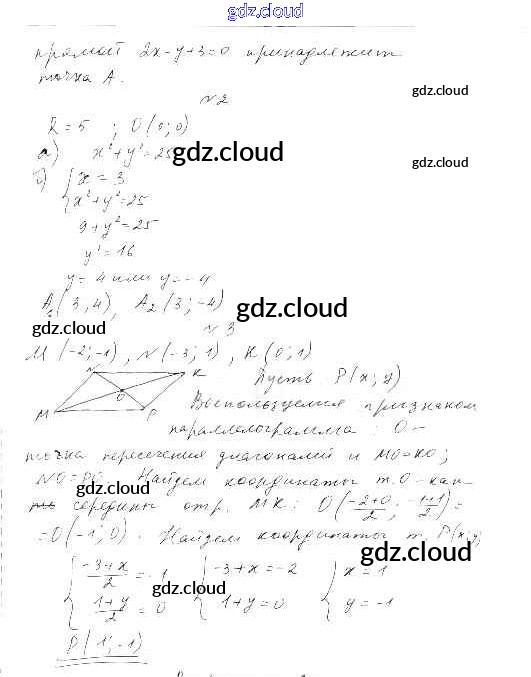 gdz.cloud
прямой 2x-y+3=0 принадлежит
точка A.
gdz.cloud
№2
R=5 ; O(0;0)
а) x²+y²=25
gdz.cloud
gdz.cloud
б) { x=3
x²+y²=25
9+y²=25
y²=16
y=4 или y=-4
A₁(3,4), A₂(3;-4)
gdz.cloud
gdz.cloud
№3
M(-2;-1), N(-3;1), K(0;1)
N K
O
M P
Пусть P(x;y)
Воспользуемся признаком
параллелограмма: O-
точка пересечения диагоналей и MO=KO;
NO=PO. Найдем координаты т. O-как
gdz.cloud
середины отр. MK: O(-2+0/2; -1+1/2)=
=O(-1;0). Найдем координаты т. P(x;y)
gdz.cloud
{ -3+x/2=-1 { -3+x=-2 { x=1
gdz.cloud
1+y/2=0 1+y=0 y=-1
P(1;-1)